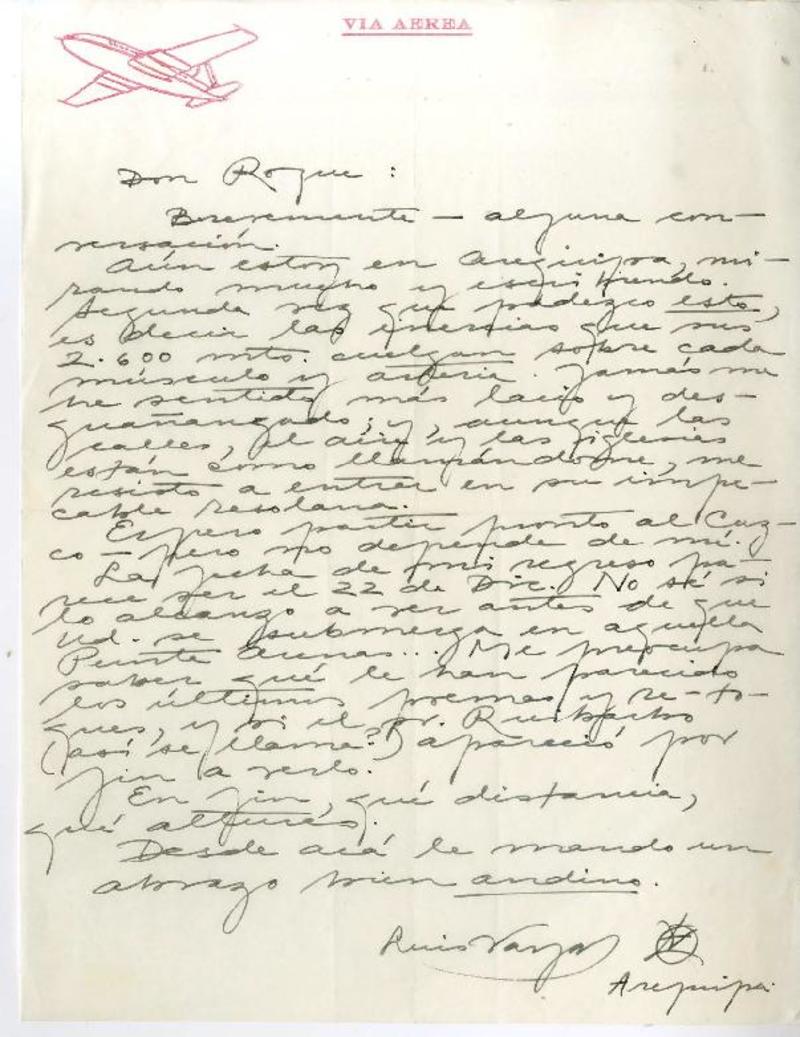 VIA AEREA
Don Roque :
Brevemente — alguna con-
versación.
Aún estoy en Arequipa, mi-
rando mucho y escribiendo.
Segunda vez que padezco esto,
es decir las inercias que sus
2.600 mts. cuelgan sobre cada
músculo y arteria. Jamás me
he sentido más lacio y des-
guañangado; y, aunque las
calles, el aire y las iglesias
están como llamándome, me
resisto a entrar en su impe-
cable resolana.
Espero partir pronto al Cuz-
co — pero no depende de mí.
La fecha de mi regreso pa-
rece ser el 22 de Dic. No sé si
lo alcanzo a ver antes de que
Ud. se submerja en aquella
Punta Arenas... Me preocupa
saber qué le han parecido
los últimos poemas y re-to-
ques, y si el Sr.
(así se llama?) apareció por
fin a verlo.
En fin, qué distancia,
qué alturas.
Desde acá le mando un
abrazo bien andino.
Luis Vargas
Arequipa.